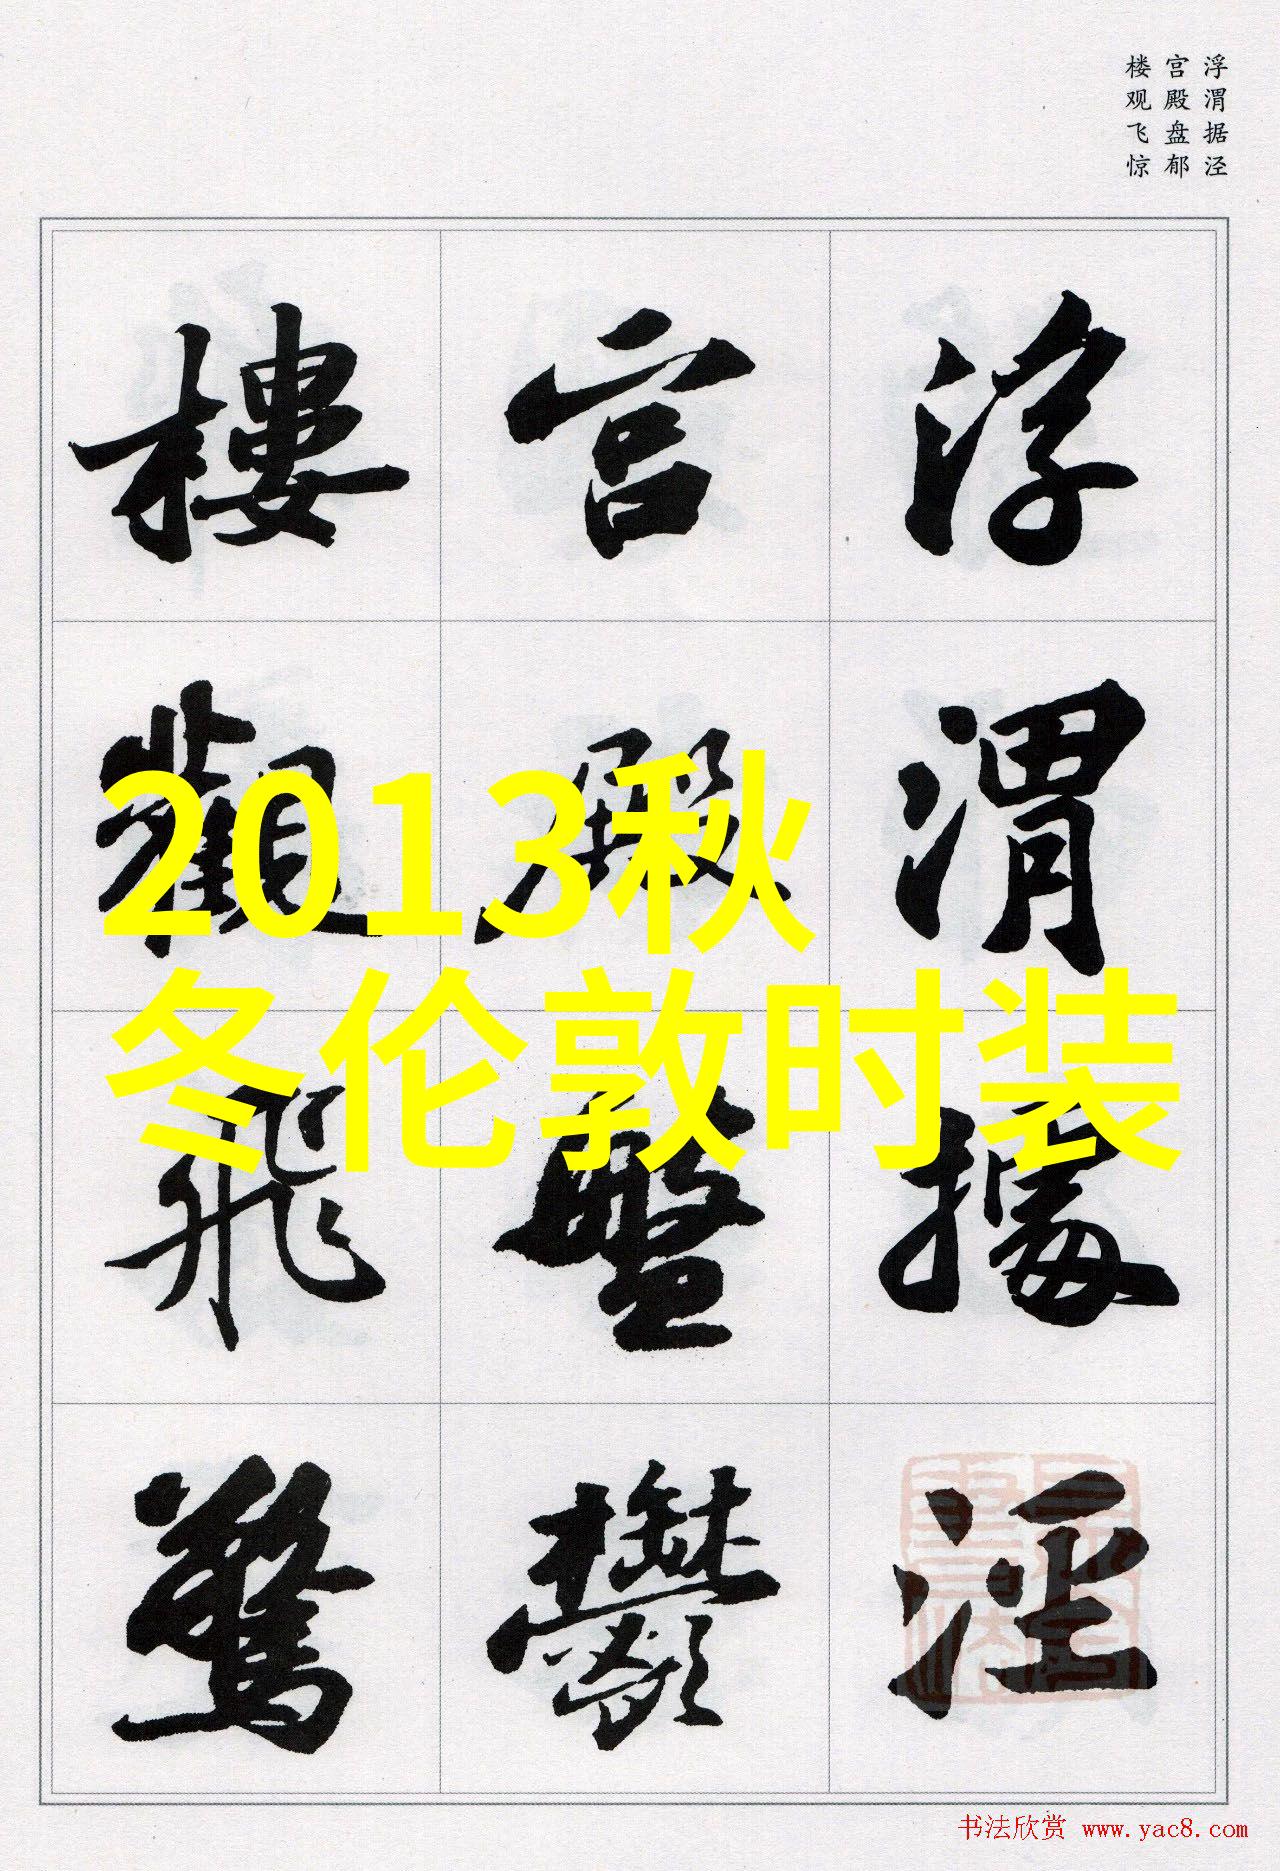 浮渭据泾
宫殿盘郁
楼观飞惊
浮渭據涇
宫殿盤鬱
樓觀飛驚
2013秋
冬伦敦时装
书法欣赏 www.yac8.com